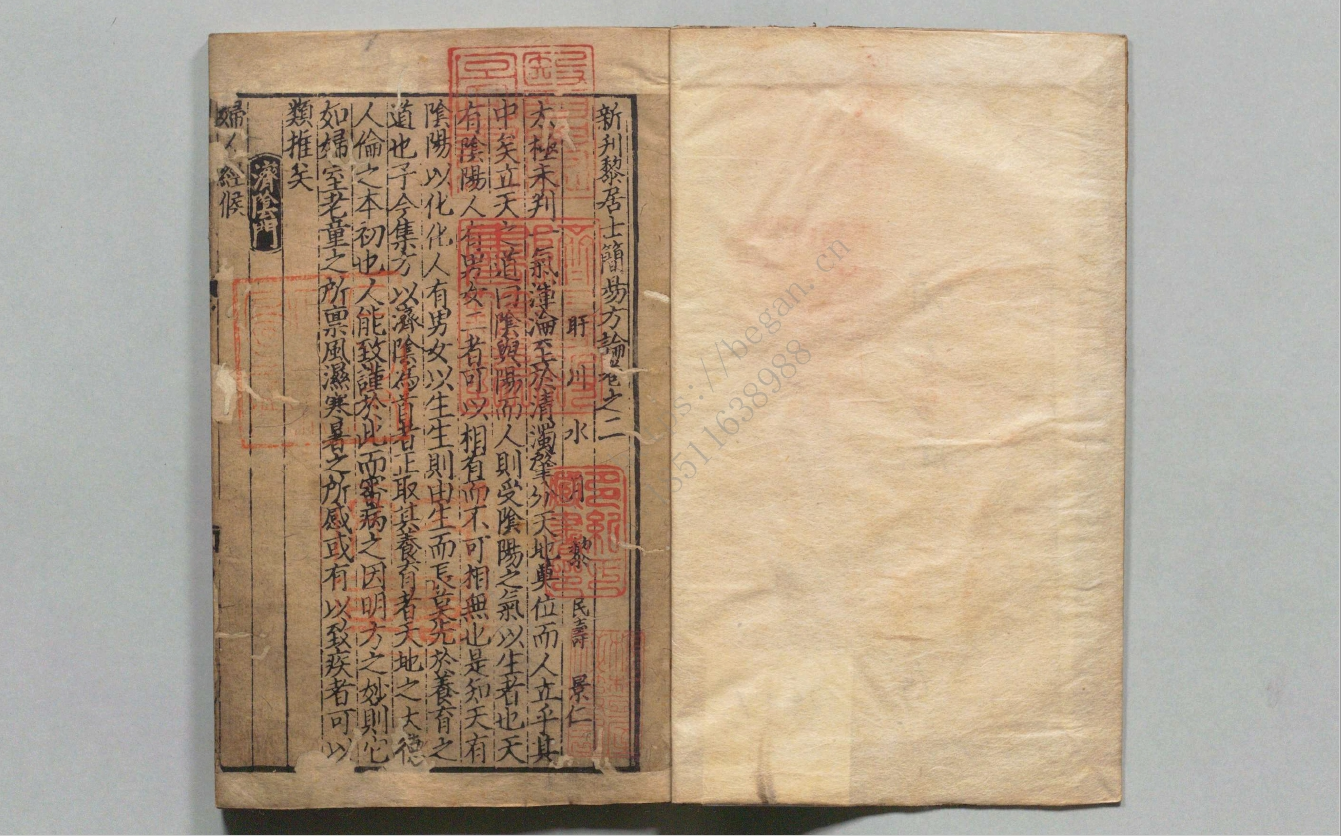 新刋黎居士簡昜方論卷之二
盱川水月黎民壽景仁
太極未判一氣渾淪至於清濁肇分天地奠位而人立乎其
中矣立天之道曰陰與陽而人則受陰陽之氣以生者也天
有陰陽人有男女二者可以相有而不可相無也是知天有
陰陽以化化人有男女以生生則由生而長莫先於養育之
道也予今集方以濟陰為首者正取其養育者天地之大德
人倫之本初也人能致謹於此而審病之因明方之妙則它
如婦室老童之所禀風濕寒暑之所感或有以致疾者可以
類推矣
濟陰門
婦人經候
https://began.cn